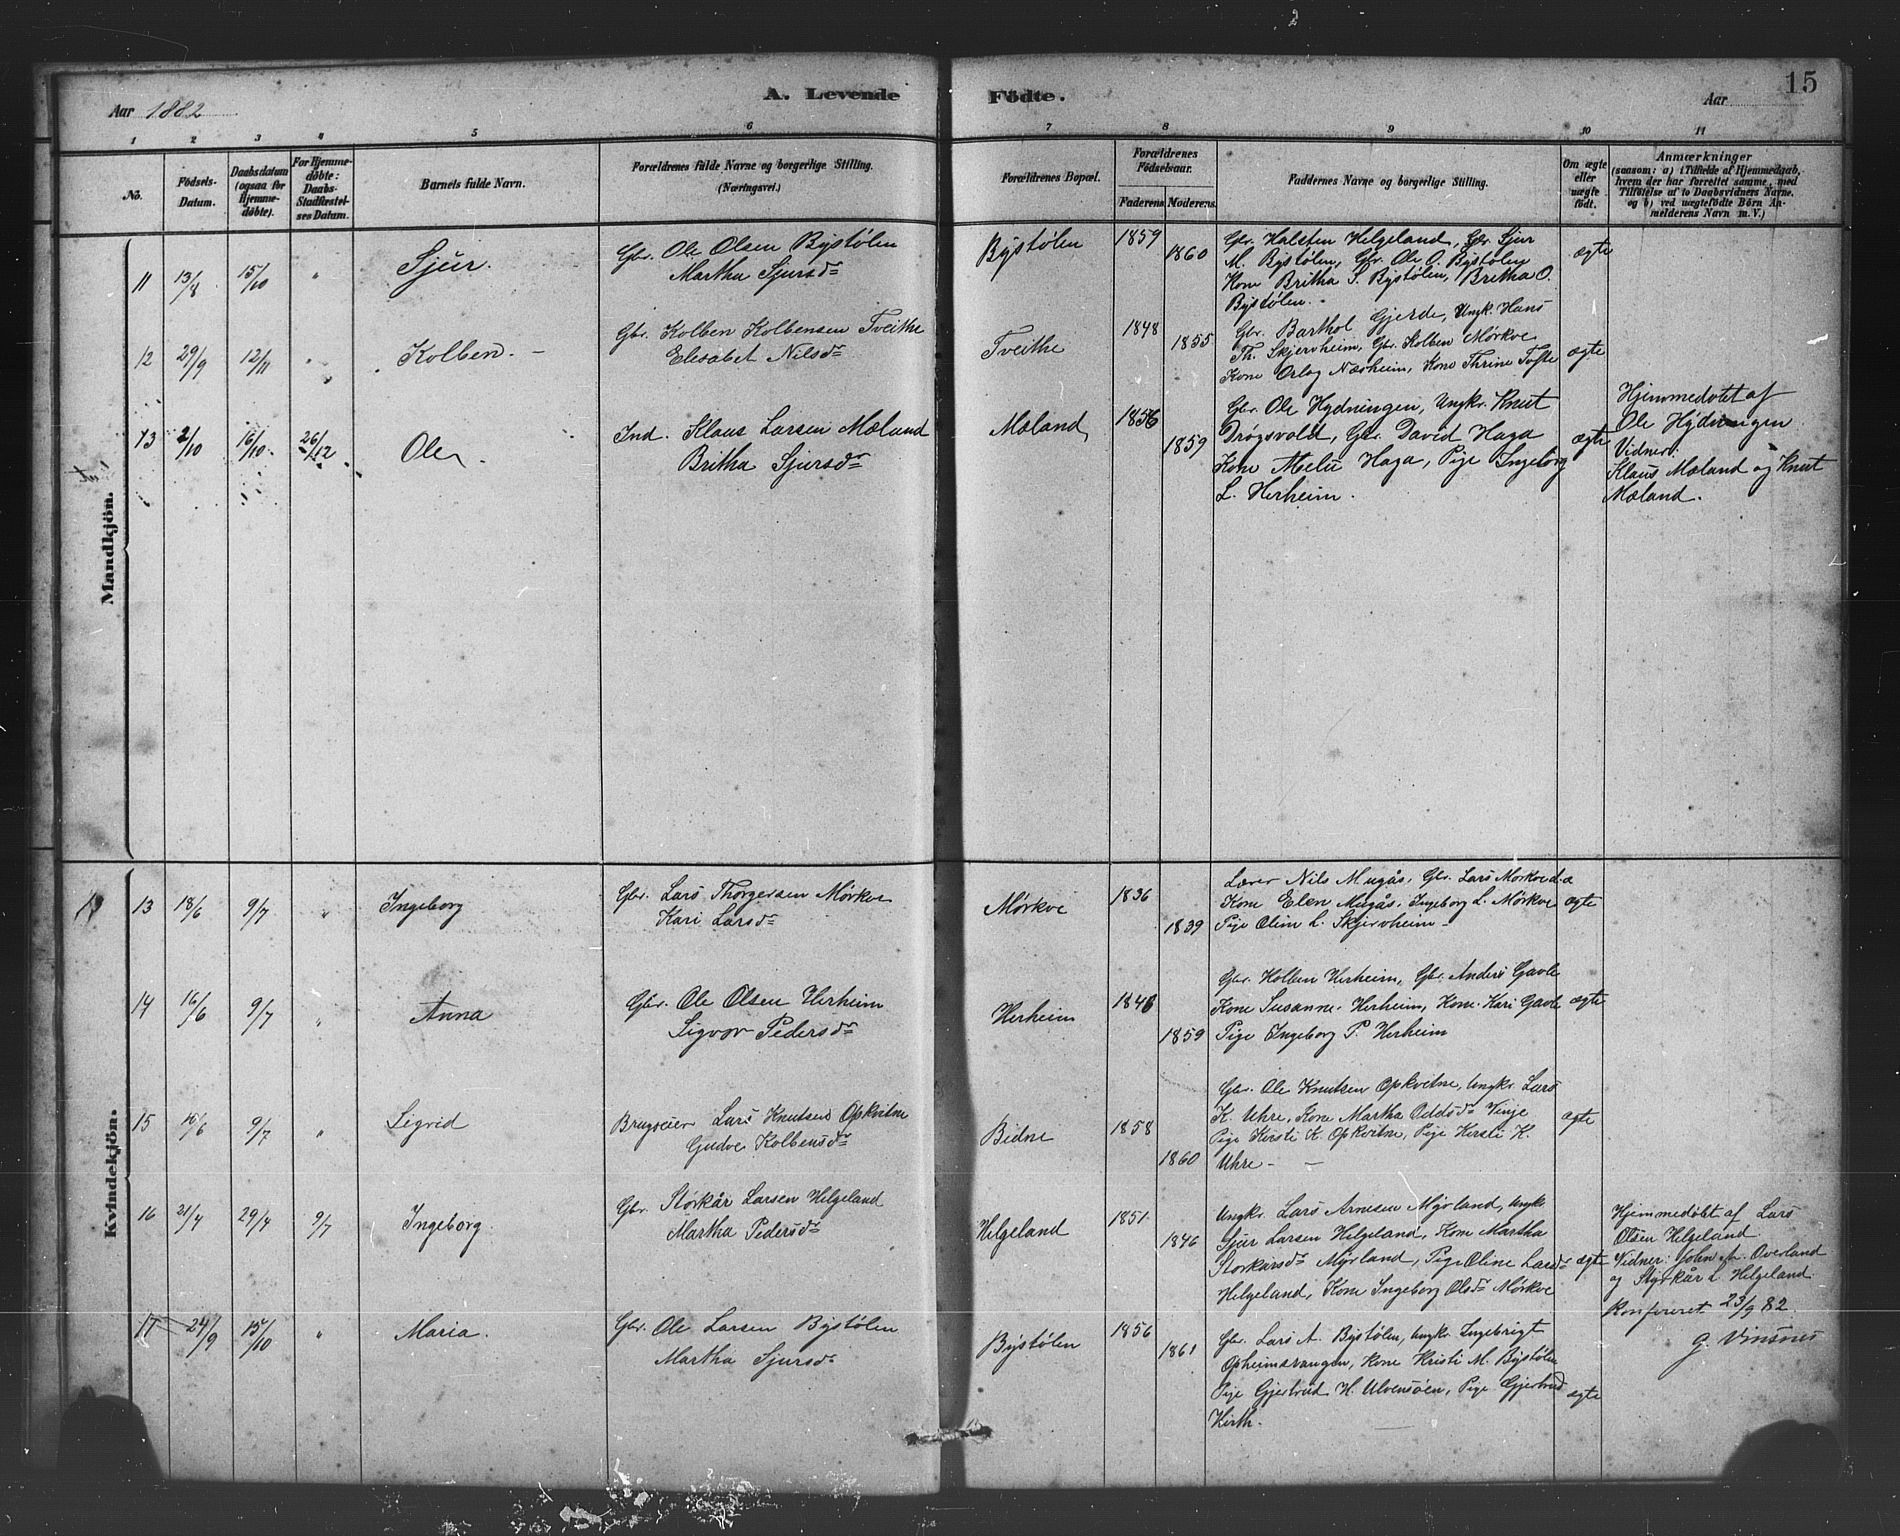 15
Aar 1882
A. Levende
Födte.
Aar
1 2 3 4 5 6 7 8 9 10 11
No.
Födsels-
Datum.
Daabsdatum
(ogsaa för
Hjemme-
döbte).
For Hjemme-
döbte:
Daabs-
Stadfæstel-
ses Datum.
Barnets fulde Navn.
Forældrenes fulde Navne og borgerlige Stilling.
(Næringsvei.)
Forældrenes Bopæl.
Forældrenes
Födselsaar.
Faderens.
Moderens.
Faddernes Navne og borgerlige Stilling.
Om ægte
eller
uægte
födt.
Anmærkninger
(saasom: a) i Tilfælde af Hjemmedaab,
hvem der har forrettet samme, med
Tilföielse af to Daabsvidners Navne,
og b) ved uægtefödte Börn An-
melderens Navn m. V.)
Mandkjön.
11 13/8 15/10 "
Sjur.
Gbr. Ole Olsen Bystølen
Martha Sjursdr
Bystølen
1859
1860
Gbr. Halsten Helgeland, Gbr. Sjur
M. Bystølen, Gbr. Ole O. Bystølen
Kone Britha S. Bystølen, Britha O.
Bystølen.
ægte
12 29/9 12/11 "
Kolben.
Gbr. Kolben Kolbensen Tveithe
Elisabet Nilsdr
Tveithe
1848
1855
Gbr. Barthol Gjerde, Ungk. Hans
Th. Skjervheim, Gbr. Kolben Mørkve
Kone Orlog Næsheim, Kone Thrine Tofte
ægte
13 2/10 16/10 26/12
Ole
Ind. Klaus Larsen Mæland
Britha Sjursdr
Mæland
1856
1859
Gbr. Ole Hydningen, Ungkr. Knut
Drøgsvold, Gbr. David Haga
Kone Haga, Pige Ingeborg
L. Herheim.
ægte
Hjemmedøbt af
Ole Hydningen
Vidner:
Klaus Mæland og Knut
Mæland.
Kvindekjön.
13 18/6 9/7 "
Ingeborg
Gbr. Lars Thorgersen Mørkve
Kari Larsdr
Mørkve
1836
1839
Lærer Nils Mugås, Gbr. Lars Mørkve
Kone Elen Mugås, Ingeborg L. Mørkve
Pige Olina L. Skjervheim
ægte
14 16/6 9/7 "
Anna
Gbr. Ole Olsen Herheim
Sigvor Pedersdr
Herheim
1846
1859
Gbr. Kolben Herheim, Gbr. Anders Gavle
Kone Susanne Herheim, Kone Kari Gavle
Pige Ingeborg P. Herheim
ægte
15 10/6 9/7 "
Sigrid
Brugseier Lars Knutsen Opkvitne
Gudve Kolbensdr
Bidne
1858
1860
Gbr. Ole Knutsen Opkvitne, Ungkr. Lars
K. Uhre, Kone Martha Oddsdr Vinje
Pige Kirsti K. Opkvitne, Pige Kirsti K.
Uhre
ægte
16 21/4 29/4 9/7
Ingeborg.
Gbr. Størkår Larsen Helgeland
Martha Pedersdr
Helgeland
1851
1846
Ungkr. Lars Arnesen Myrland, Ungkr.
Sjur Larsen Helgeland, Kone Martha
Størkarsdr Myrland, Pige Oline Larsdr
Helgeland, Kone Ingeborg Olsdr Mørkve
ægte
Hjemmedøbt af Lars
Olsen Helgeland
Vidner: John A. Overland
og Styrkår L Helgeland
Konfereret 23/9 82.
G. Vinsnes
17 24/9 15/10 "
Maria.
Gbr. Ole Larsen Bystølen
Martha Sjursdr
Bystølen
1856
1861
Gbr. Lars A. Bystølen, Ungkr. Ingebrigt
Opheimsvangen, Kone Kristi M. Bystølen
Pige Gjertrud H. Ulvensøen, Pige Gjertrud
Kirth.
ægte